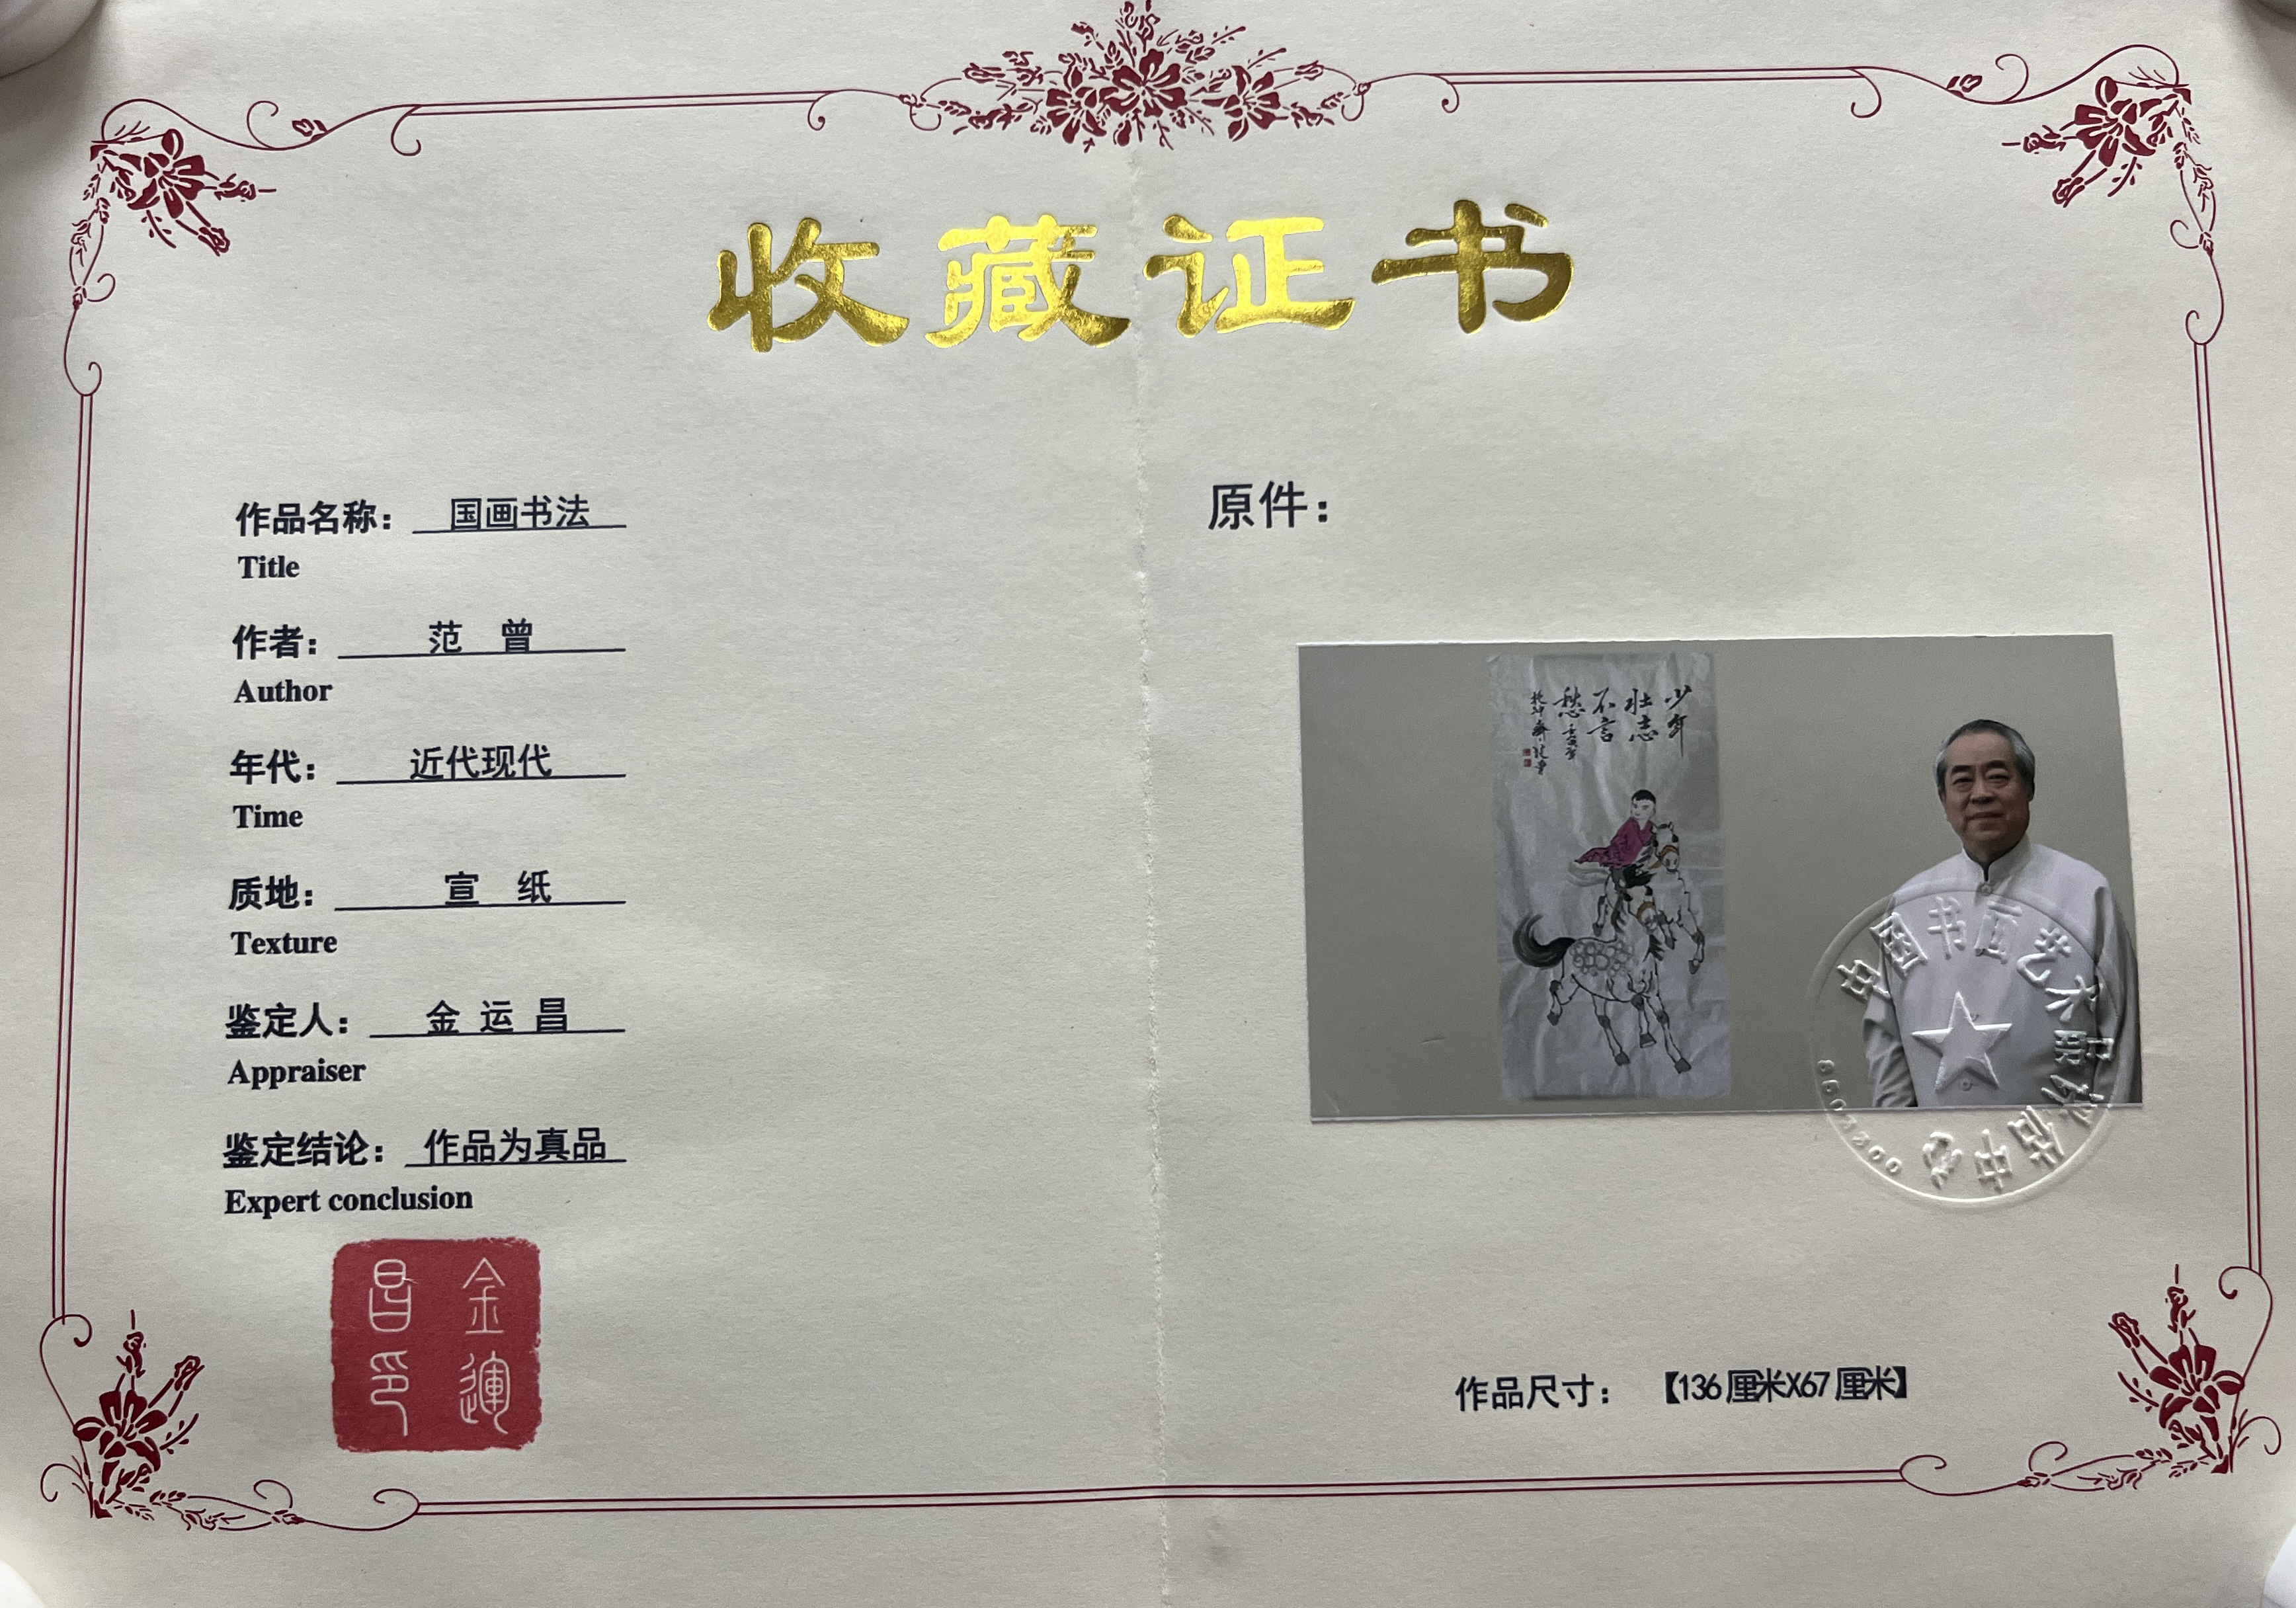 收藏证书
作品名称： 国画书法
Title
作者： 范 曾
Author
年代： 近代现代
Time
质地： 宣 纸
Texture
鉴定人： 金 运 昌
Appraiser
鉴定结论： 作品为真品
Expert conclusion
金運
昌印
原件：
少年
壮志
不言
愁
中国书画艺术品评估中心
作品尺寸： 【136厘米X67厘米】